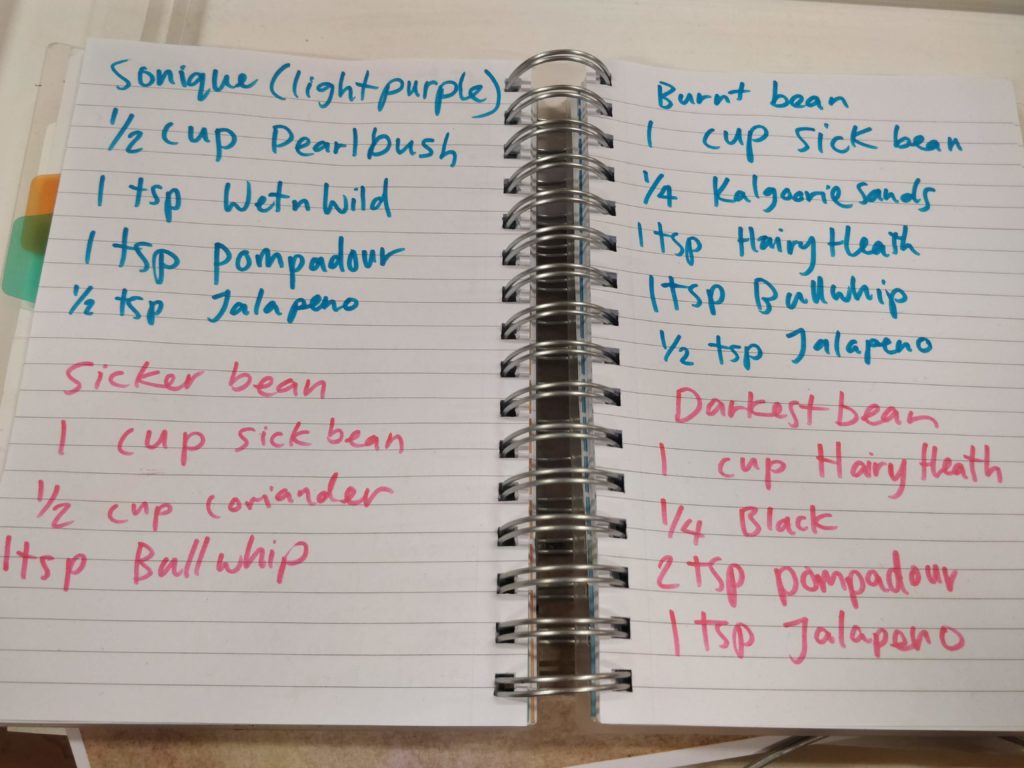 Sonique (lightpurple)
1/2 cup Pearlbush
1 tsp Wet n Wild
1 tsp pompadour
1/2 tsp Jalapeno
Sicker bean
1 cup sick bean
1/2 cup coriander
1tsp Bullwhip
Burnt bean
1 cup sick bean
1/4 Kalgoorie sands
1tsp Hairy Heath
1tsp Bullwhip
1/2 tsp Jalapeno
Darkest bean
1 cup Hairy Heath
1/4 Black
2 tsp pompadour
1 tsp Jalapeno